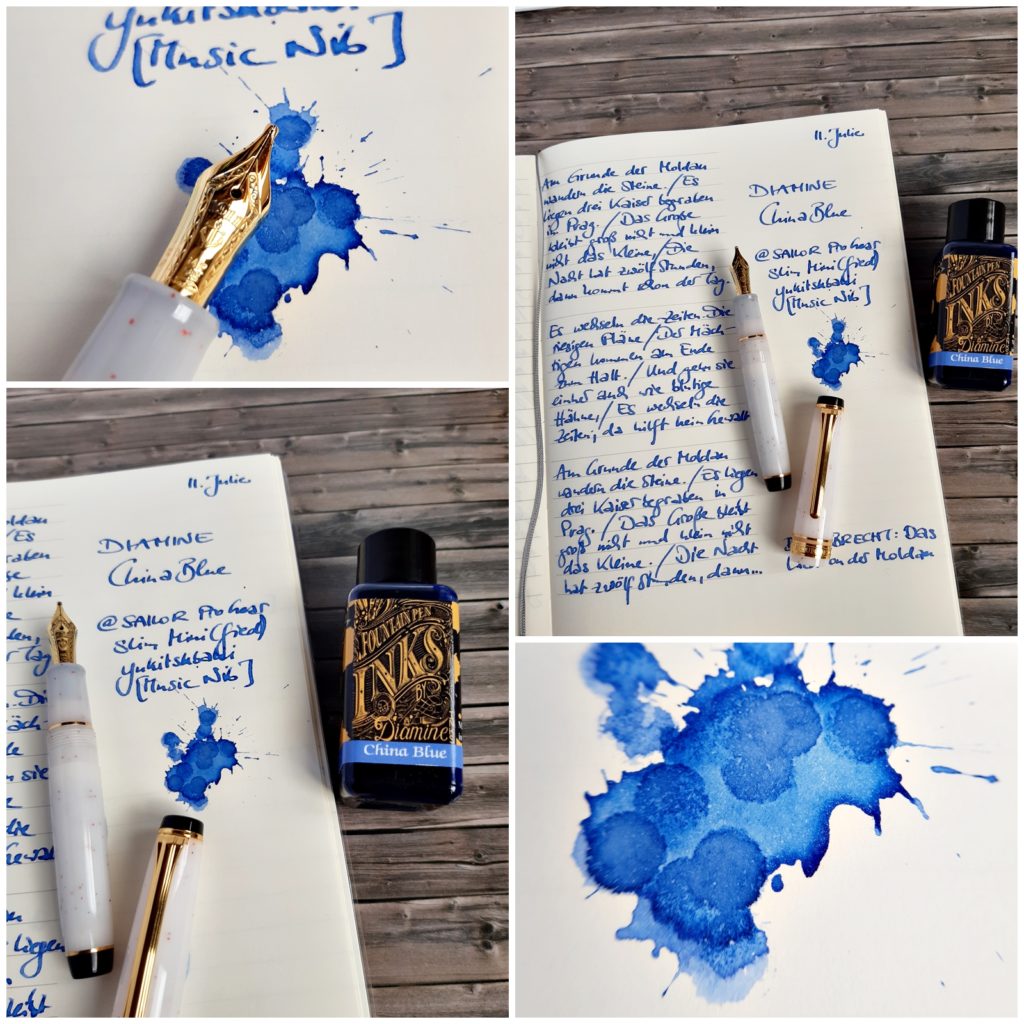 [Music Nib]
11. Julie
Am Grunde der Moldau
wandern die Steine./Es
liegen drei Kaiser begraben
in Prag./Das Große
bleibt groß nicht und klein
nicht das Kleine,/Die
Nacht hat zwölf Stunden,
dann kommt schon der Tag.
Es wechseln die Zeiten. Die
riesigen Pläne/Der Mäch-
tigen kommen am Ende
zum Halt./Und gehn sie
einher auch wie blutige
Hähne,/Es wechseln die
Zeiten, da hilft kein Gewalt
Am Grunde der Moldau
wandern die Steine./Es liegen
drei Kaiser begraben in
Prag./Das Große bleibt
groß nicht und klein nicht
das Kleine./Die Nacht
hat zwölf St nden, dann...
DIAMINE
China Blue
@SAILOR Pro Gear
Slim Mini (fied)
Yukitsubaki
[Music Nib]
BRECHT: Das
von der Moldau
FOUNTAIN PEN
INKS
Diamine
China Blue
11. Julie
DIAMINE
China Blue
@SAILOR Pro Gear
Slim Mini (fied)
Yukitsubaki
[Music Nib]
ldau
/Es
raben
klein
den,
Tag
Die
Mäch-
sie
die
Gewal
liegen
bleibt
FOUNTAIN PEN
INKS
by Diamine
China Blue